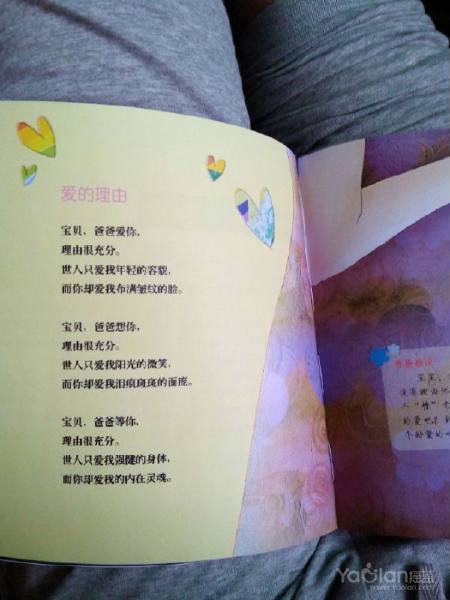 爱的理由
宝贝，爸爸爱你，
理由很充分。
世人只爱我年轻的容貌，
而你却爱我布满皱纹的脸。
宝贝，爸爸想你，
理由很充分。
世人只爱我阳光的微笑，
而你却爱我泪痕斑斑的面庞。
宝贝，爸爸等你，
理由很充分。
世人只爱我强健的身体，
而你却爱我的内在灵魂。
宝宝，
没有理由
人“
的爱
个
Yaolan摇篮
www.yaolan.com